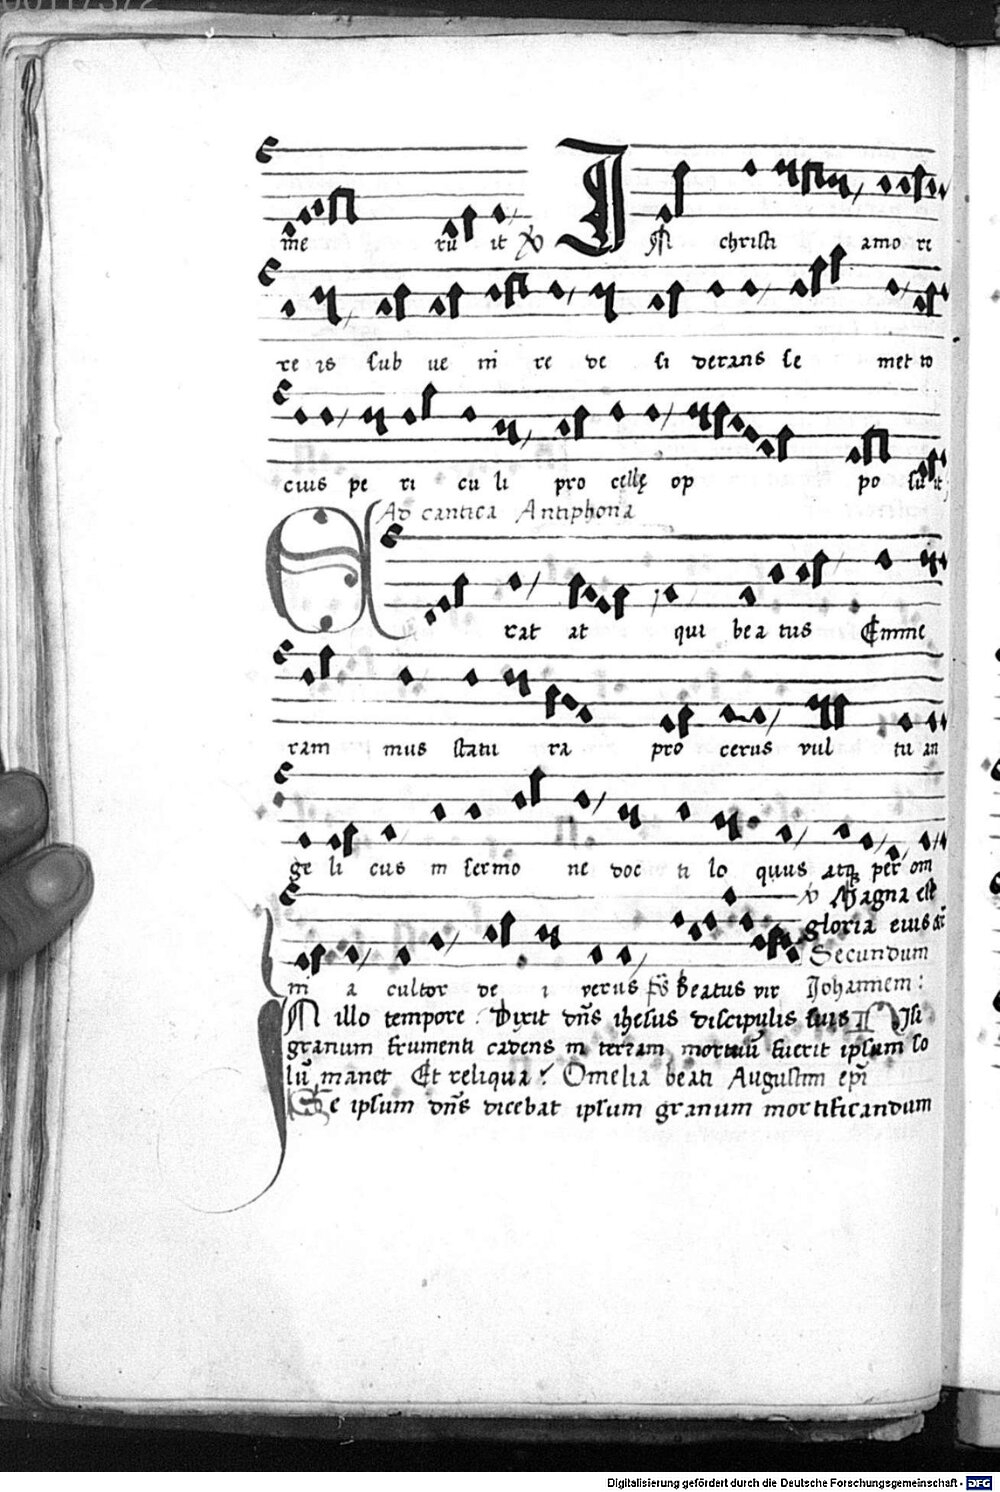 me ru it ℣ IN christi amo ri
re is sub ue ni re de si derans se met to
cius pe ri cu li pro cellę op po su it
Ad cantica Antiphona
Erat at qui bea tus Emme
ram mus statu ra pro cerus vul tu an
ge li cus in sermo ne doc ti lo quus atq per om
ni a cultor de i verus
℣ Magna est
gloria eius
Secundum
ps Beatus vir Johannem:
IN illo tempore. Dixit dns ihesus discipulis suis Nisi
granum frumenti cadens in terram mortuū fuerit ipsum so
lū manet Et reliqua Omelia beati Augustini epi
Se ipsum dns dicebat ipsum granum mortificandum
Digitalisierung gefördert durch die Deutsche Forschungsgemeinschaft - DFG